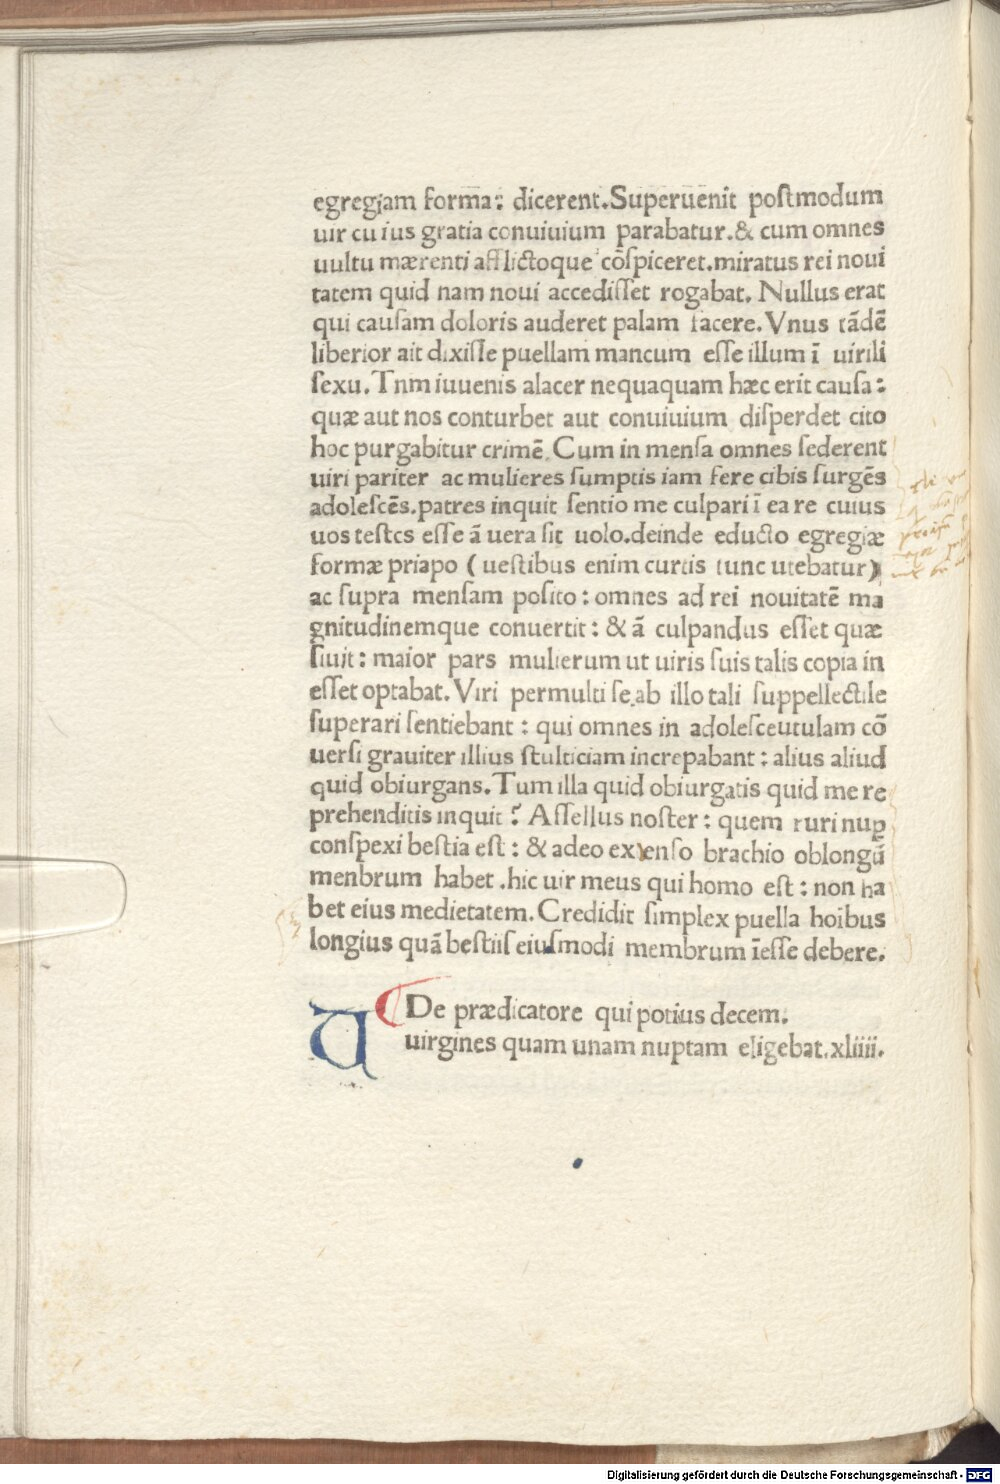 egregiam form̄a: dicerent.Superuēnit postmodum
uir cuius gratia conuiuium parabatur.& cum omnes
uultu mærenti afflictoque cōspiceret.miratus rei noui
tatem quid nam noui accedisset rogabat. Nullus erat
qui causam doloris auderet palam facere. Vnus tādē
liberior ait dixisse puellam mancum esse illum ī uirili
sexu. Tnm iuuenis alacer nequaquam hæc erit causa:
quæ aut nos conturbet aut conuiuium disperdet cito
hoc purgabitur crimē. Cum in mensa omnes sederent
uiri pariter ac mulieres sumptis iam fere cibis surgēs
adolescēs.patres inquit sentio me culpari ī ea re cuius
uos testes esse ā uera sit uolo.deinde educto egregiæ
formæ priapo (uestibus enim curtis tunc utebatur)
ac supra mensam posito: omnes ad rei nouitatē ma
gnitudinemque conuertit: & ā culpandus esset quæ
siuit: maior pars mulierum ut uiris suis talis copia in
esset optabat. Viri permulti se ab illo tali suppellectile
superari sentiebant: qui omnes in adolesceutulam cō
uersi grauiter illius stulticiam increpabant: alius aliud
quid obiurgans. Tum illa quid obiurgatis quid me re
prehenditis inquit? Assellus noster: quem ruri nup̱
conspexi bestia est: & adeo extenso brachio oblongū
menbrum habet .hic uir meus qui homo est: non ha
bet eius medietatem. Credidit simplex puella hoibus
longius quā bestiis eiusmodi membrum īesse debere.
De prædicatore qui potius decem.
U uirgines quam unam nuptam eligebat.xliiii.
Digitalisierung gefördert durch die Deutsche Forschungsgemeinschaft - DFG